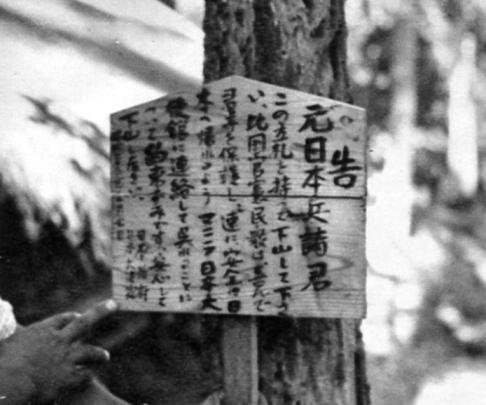 告
元日本兵諸君
この立札を持って下山して下さ
い、比国官憲民衆は喜んで
君等を保護し、速に安全に日
本へ帰れるよう マニラ日本大
使館に連絡して呉れることに
なって約束ずみです。安心して
下山して下さい。
日本政府